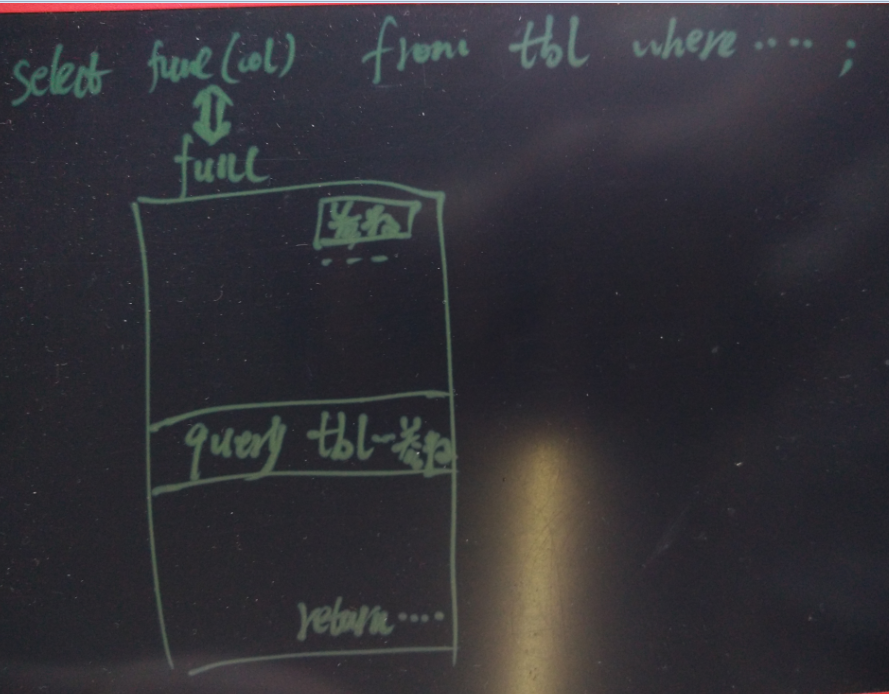 select func(col) from tbl where ····· ;
func
差扫
----
query tbl-差扫
return ····